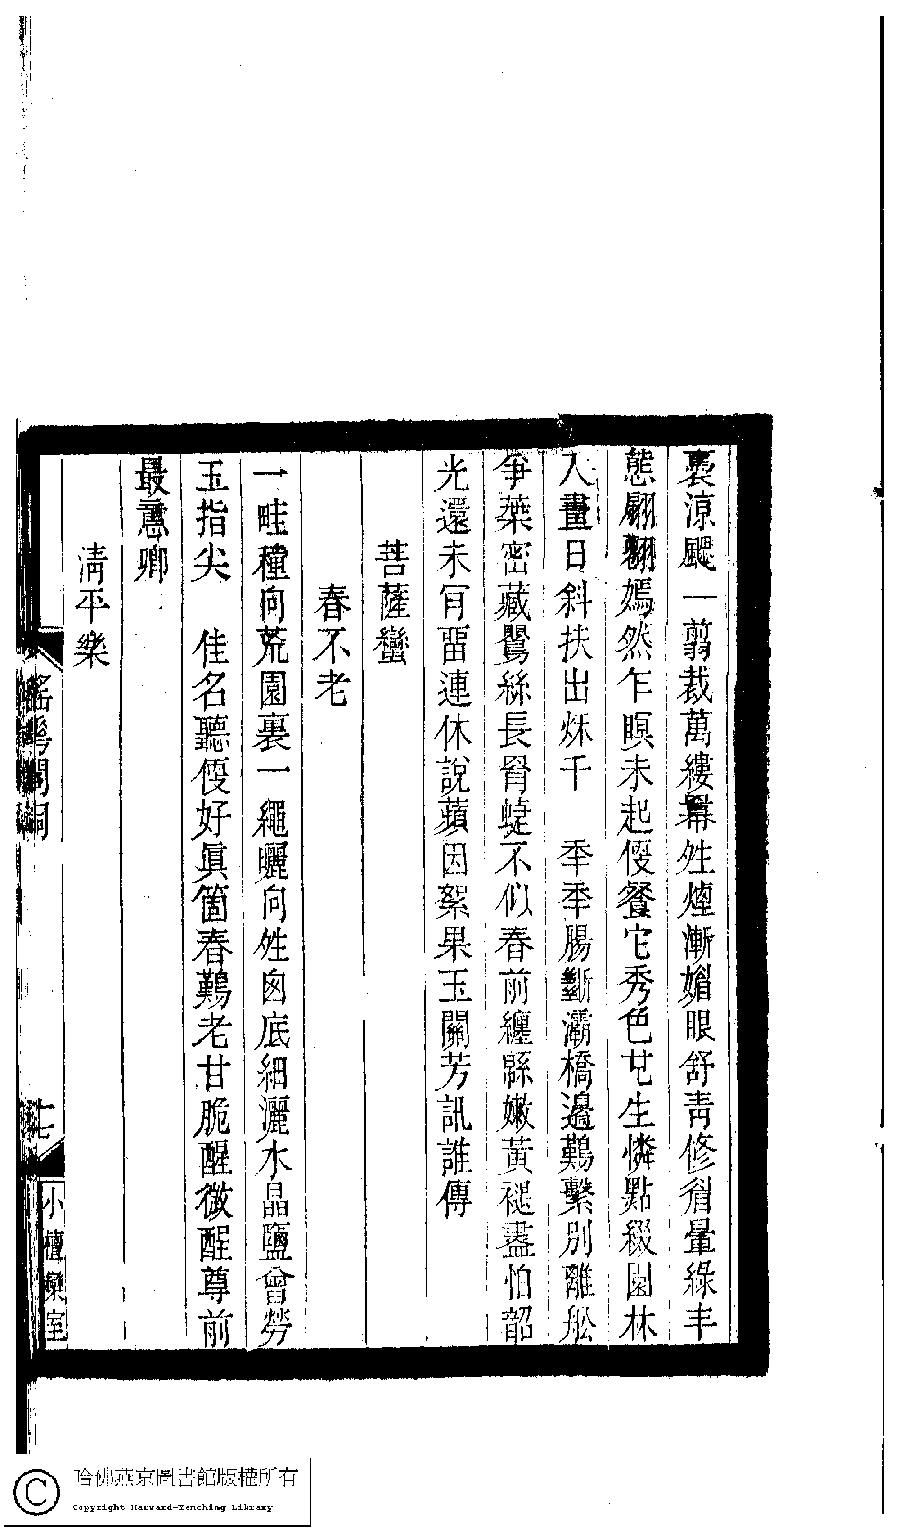 裏涼颸一翦裁萬縷冪姓煙漸媚眼舒青修眉暈綠丰
態翩翻嫣然乍瞑未起偎餐它秀色芘生憐點綴園林
入畫日斜扶出烁千　季季腸斷灞橋邊難繫別離舩
爭葉密藏鶯絲長胃蜨不似春前纏緜嫩黃褪盡怕韶
光還未肎畱連休說蘋因絮果玉關芳訊誰傳
菩薩蠻
春不老
一畦種向荒園裏一繩曬向姓囱底細灑水晶鹽曾勞
玉指尖　佳名聽偎好眞箇春難老甘脆醒微酲尊前
最憙卿
清平樂
瑤華閣詞
七
小檀欒室
哈佛燕京圖書館版權所有
Copyright Harvard-Yenching Library